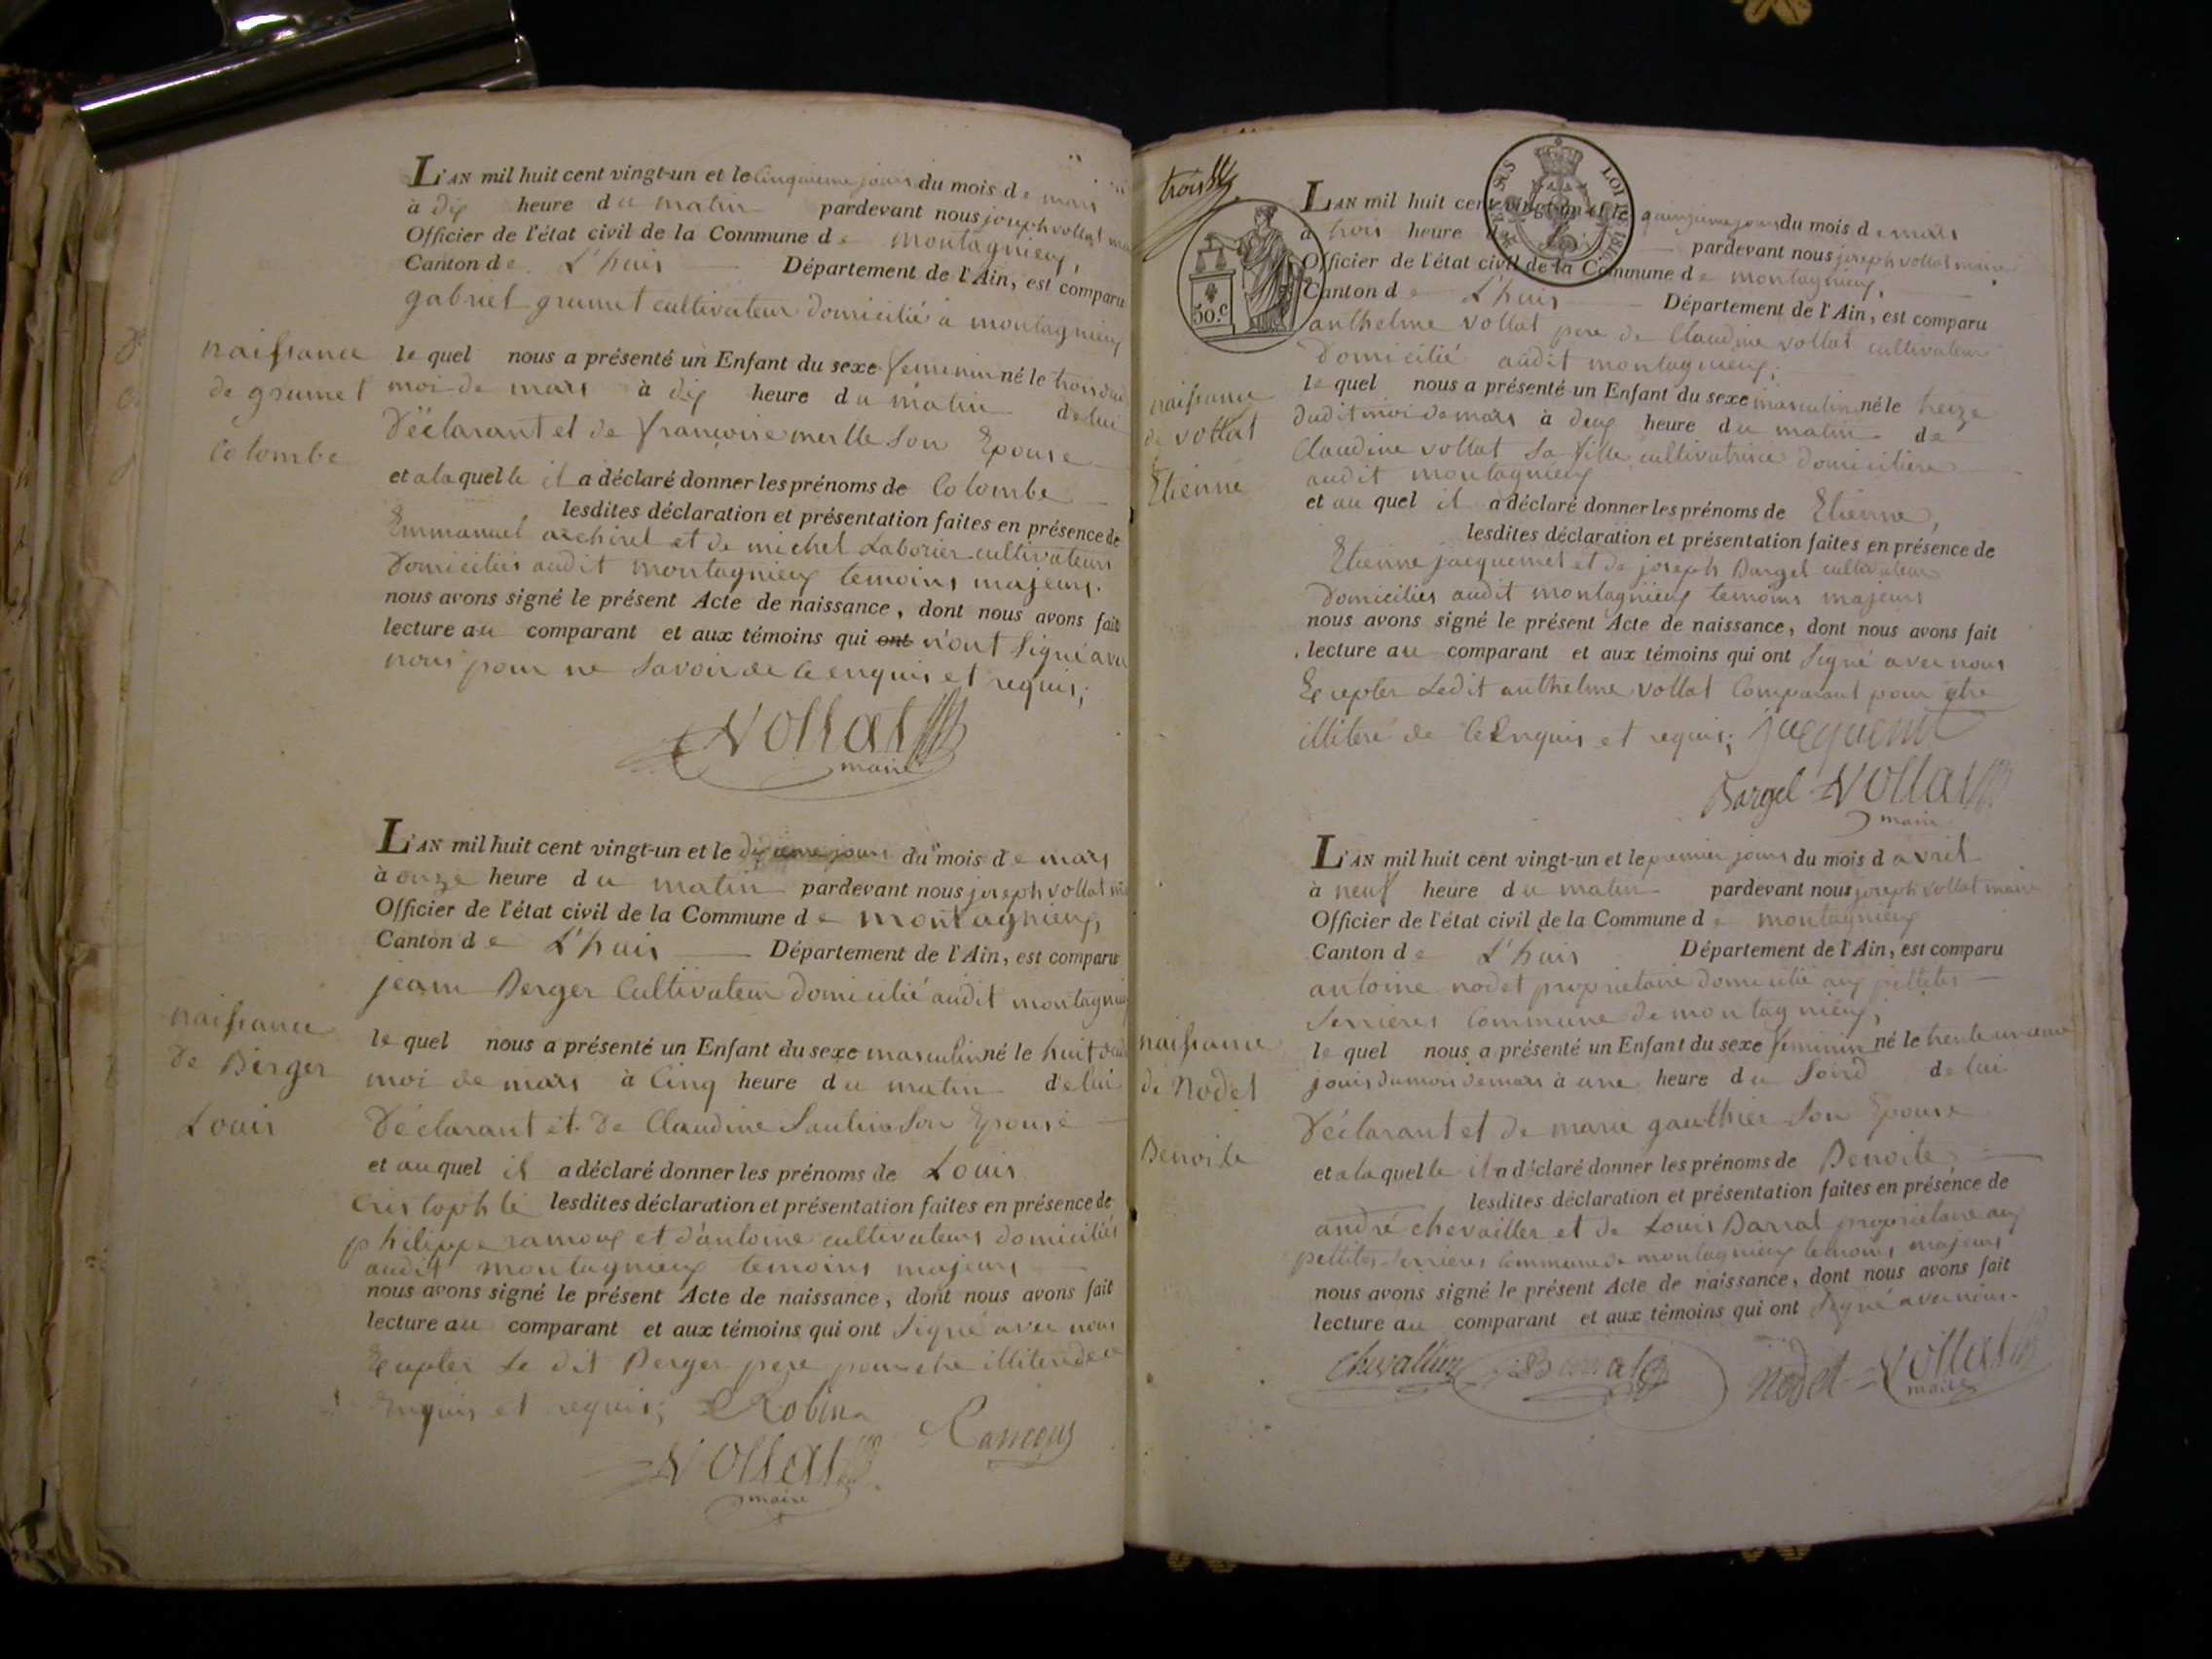 L'AN mil huit cent vingt-un et le Cinquieme jours du mois de mars
à dix heure du matin pardevant nous joseph vollat
Officier de l'état civil de la Commune de montagnieux,
Canton de L'huis Département de l'Ain, est comparu
gabriel grumet cultivateur domicilié a montagnieux
naissance
de grumet
Colombe
le quel nous a présenté un Enfant du sexe feminin né le trois du
moi de mars à dix heure du matin de lui
Déclarant et de francoise merlle Son Epouse
et a la quelle il a déclaré donner les prénoms de Colombe
lesdites déclaration et présentation faites en présence de
Emmanuel et de michel Laborier cultivateurs
Domiciliés audit montagnieux temoins majeurs.
nous avons signé le présent Acte de naissance, dont nous avons fait
lecture au comparant et aux témoins qui ont n'ont Signé avec
nous pour ne Savoir de ce enquis et requis;
Vollat
maire
L'AN mil huit cent vingt-un et le dixieme jours du mois de mars
à onze heure du matin pardevant nous joseph vollat
Officier de l'état civil de la Commune de montagnieux,
Canton de L'huis Département de l'Ain, est comparu
jean Berger Cultivateur domicilié audit montagnieux
naissance
de Berger
Louis
le quel nous a présenté un Enfant du sexe masculin né le huit du
moi de mars à Cinq heure du matin de lui
Déclarant et de Claudine Saulin Son Epouse
et au quel il a déclaré donner les prénoms de Louis
Cristophle lesdites déclaration et présentation faites en présence de
philippe ramoux et d'antoine cultivateurs domiciliés
audit montagnieux temoins majeurs
nous avons signé le présent Acte de naissance, dont nous avons fait
lecture au comparant et aux témoins qui ont Signé avec nous
Excepter Le dit Berger pere pour etre illiteré de ce
Enquis et requis; Robin
Ramoux
Vollat
maire
trois
50.c
L'AN mil huit cent vingt-un et le quinzieme jours du mois de mars
à trois heure pardevant nous joseph vollat maire
Officier de l'état civil de la Commune de montagnieux,
Canton de L'huis Département de l'Ain, est comparu
anthelme vollat pere de Claudine vollat cultivateur
Domicilié audit montagnieux;
naissance
de vollat
Etienne
le quel nous a présenté un Enfant du sexe masculin né le treize
dudit moi de mars à deux heure du matin de
Claudine vollat Sa fille cultivatrice domiciliere
audit montagnieux
et au quel il a déclaré donner les prénoms de Etienne,
lesdites déclaration et présentation faites en présence de
Etienne jacquemet et de joseph Bargel cultivateurs
Domiciliés audit montagnieux temoins majeurs
nous avons signé le présent Acte de naissance, dont nous avons fait
lecture au comparant et aux témoins qui ont Signé avec nous
Excepter Ledit anthelme vollat Comparant pour etre
illiteré de ce Enquis et requis; jacquemet
Bargel Vollat
maire
L'AN mil huit cent vingt-un et le premier jours du mois d avril
à neuf heure du matin pardevant nous joseph vollat maire
Officier de l'état civil de la Commune de montagnieux
Canton de L'huis Département de l'Ain, est comparu
antoine nodet proprietaire domicilié aux pettites
Serrieres Commune de montagnieux,
naissance
de Nodet
Benoite
le quel nous a présenté un Enfant du sexe feminin né le trente unieme
jours du mois de mars à une heure du Soird de lui
Déclarant et de marie gauthier Son Epouse
et a la quelle il a déclaré donner les prénoms de Benoite
lesdites déclaration et présentation faites en présence de
andré chevallier et de Louis Barrat proprietaire aux
pettites Serrieres Commune de montagnieux temoins majeurs
nous avons signé le présent Acte de naissance, dont nous avons fait
lecture au comparant et aux témoins qui ont Signé avec nous.
Chevallier Barrat Nodet Vollat
maire